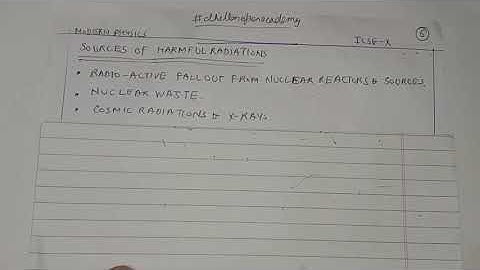 #dhillonofenacademy
6
MODERN PHYSICS ICSE-X
SOURCES OF HARMFUL RADIATIONS
• RADIO-ACTIVE FALLOUT FROM NUCLEAR REACTORS & SOURCES.
• NUCLEAR WASTE.
• COSMIC RADIATIONS & X-RAYS.